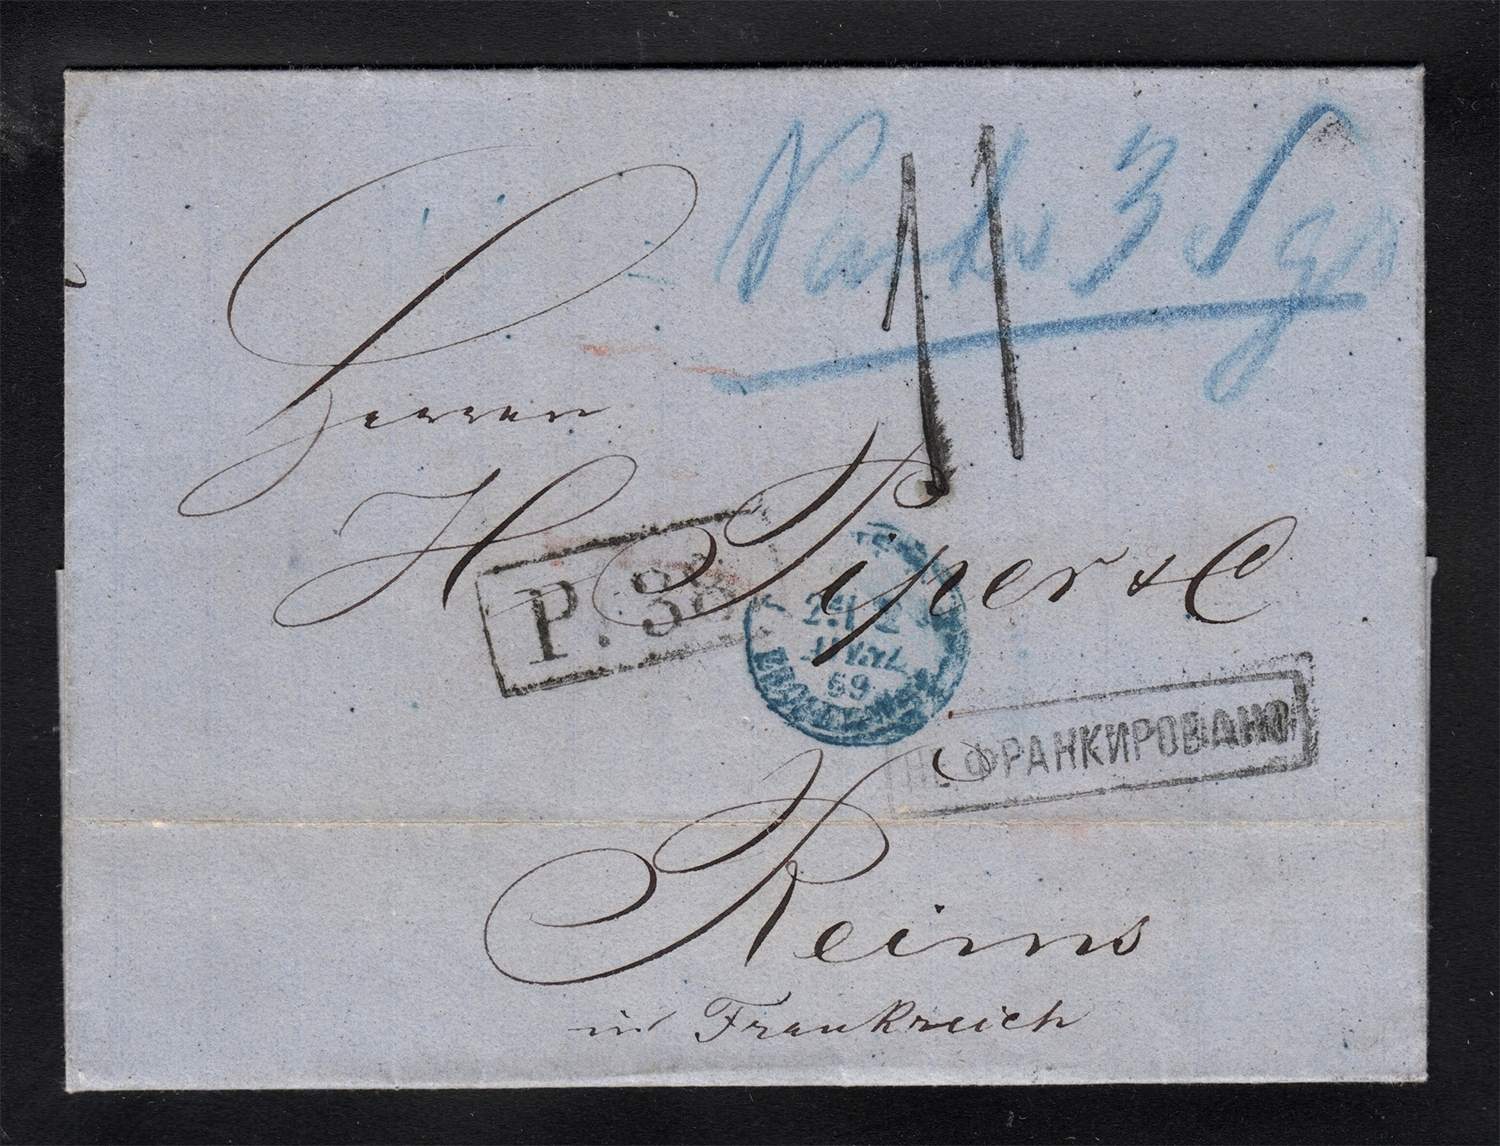 3 Sgr
11
Herren
H. Piper & Co
P. 38
2
AVRIL
69
ФРАНКИРОВАНО
Reims
in Frankreich